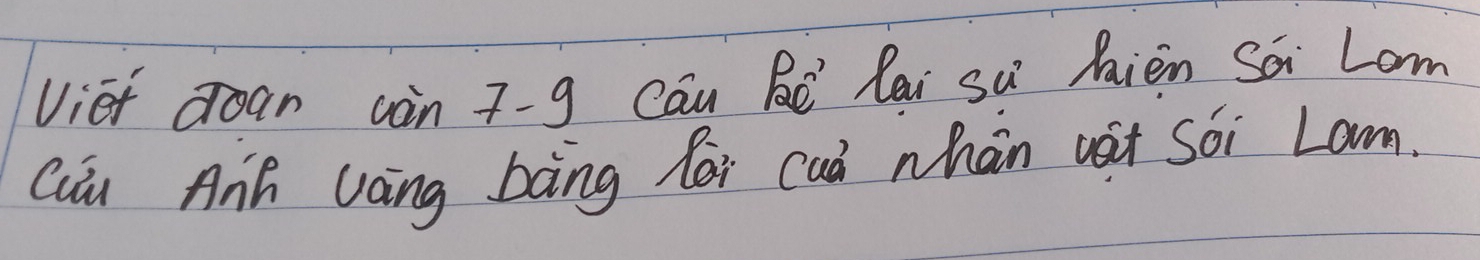 Viết đoạn văn 7-9 câu kể lại sự kiện Sói Lam
Cứu Ánh Vàng bằng lời của nhân vật Sói Lam.